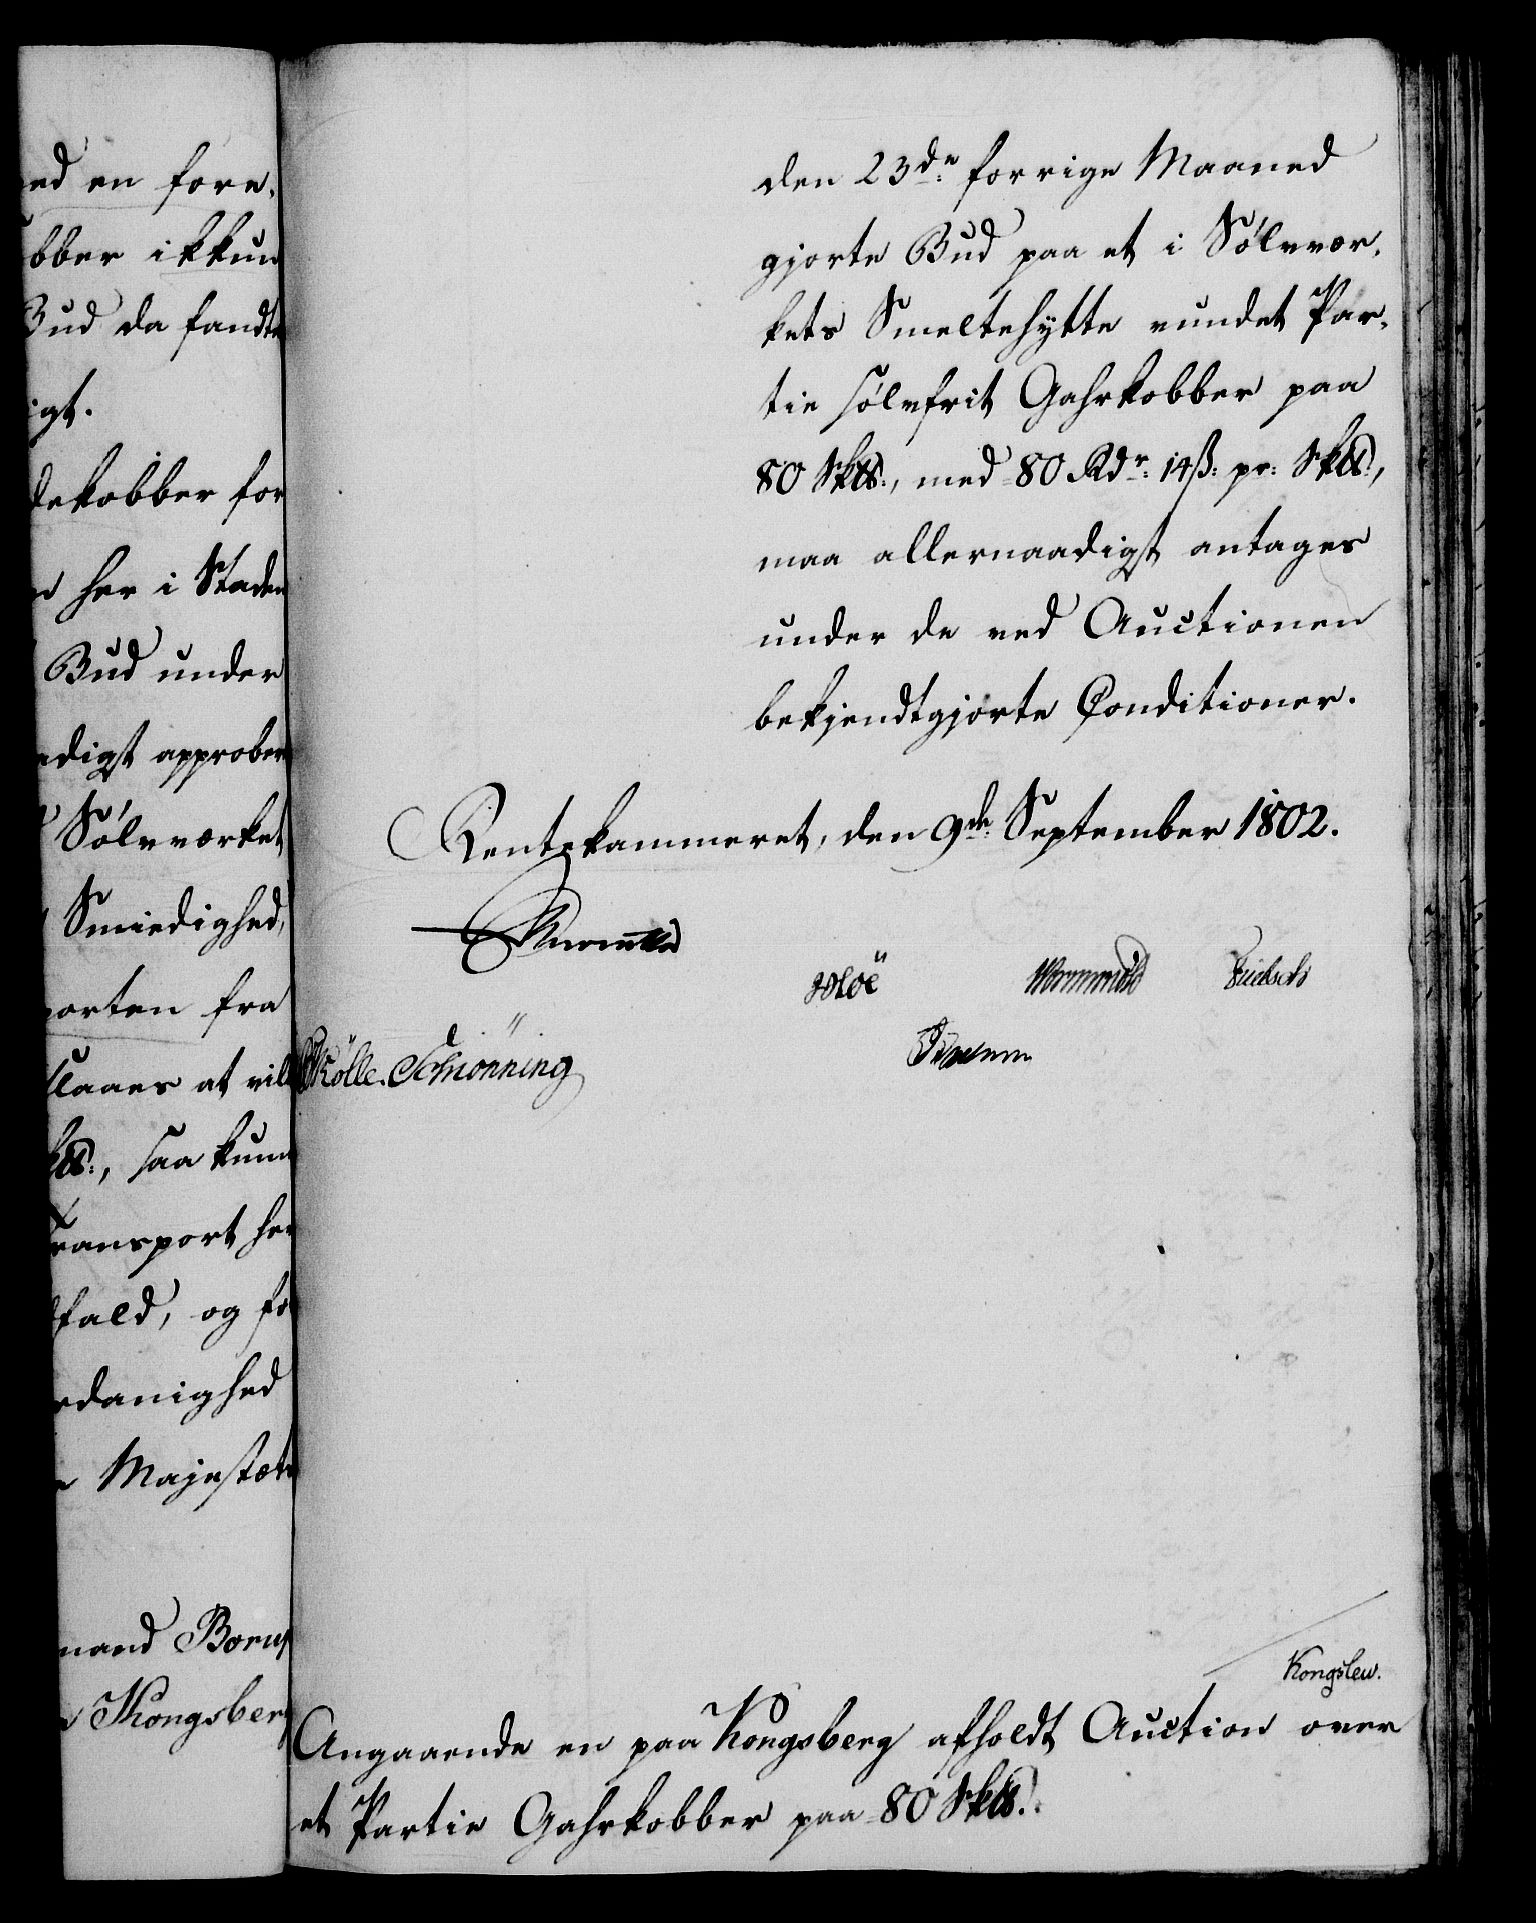 ed en fore,
bber ikkun
Bud da fandt
igt.
dekobber for
her i Staden
Bud under
adigt approber
Sølvværket
Smiedighed,
porten fra
slaaes at vil
saa kun
Transport her
fald, og fo
edanighed
Majestæt
mand Borus
Kongsber
den 23de forrige Maaned
gjorte Bud paa et i Sølvvær,
kets Smeltehytte vundet Par,
tie sølvfrit Gahrkobber paa
80 Sk℔:, med 80 Rdr: 14ß: pr: Sk℔:,
maa allernaadigst antages
under de ved Auctionen
bekjendtgjorte Conditioner.
Rentekammeret, den 9de September 1802.
Hoë Wormskiold
Kölle. Schiönning
Kongslew.
Angaaende en paa Kongsberg afholdt Auction over
et Partie Gahrkobber paa 80 Sk℔:.